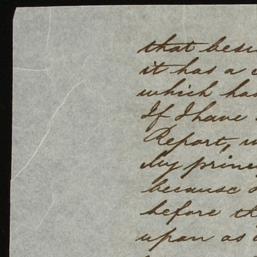 that
it has a
which
If I have
Report,
My
because
before
upon as